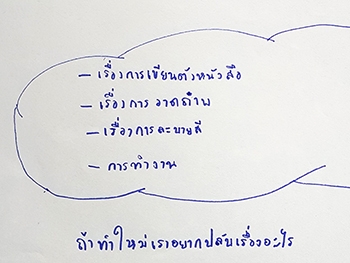 - เรื่องการเขียนตัวหนังสือ
- เรื่องการวาดภาพ
- เรื่องการระบายสี
- การทำงาน
ถ้าทำใหม่เราอยากปลับเรื่องอะไร